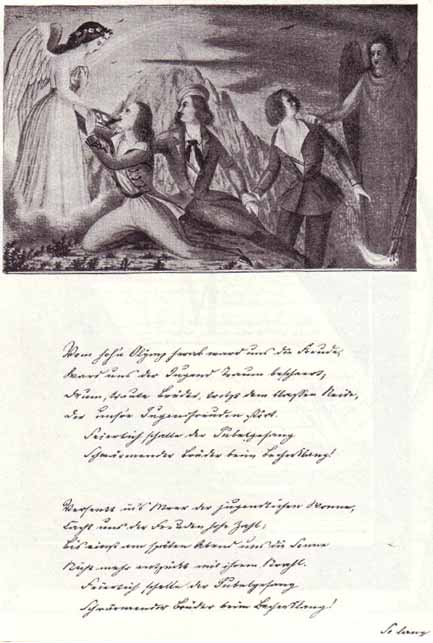 Vom hoh'n Olymp herab ward uns die Freude,
Ward uns der Jugend Traum bescheert,
Drum, traute Brüder, trotzt dem blassen Neide,
Der uns're Jugendfreuden stört.
Feierlich schalle der Jubelgesang
Schwärmender Brüder beim Becherklang!
Versenkt in's Meer der jugendlichen Wonne,
Lacht uns der Freuden hohe Zahl,
Bis einst am späten Abend uns die Sonne
Nicht mehr entzückt mit ihrem Strahl.
Feierlich schalle der Jubelgesang
Schwärmender Brüder beim Becherklang!
So lang